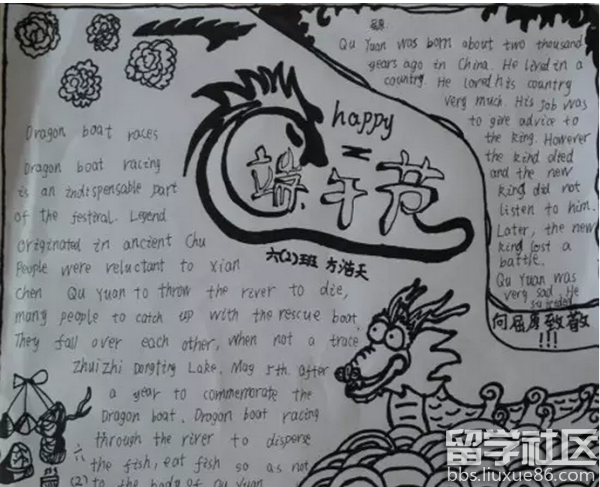 Dragon boat races
Dragon boat racing
is an indispensable part
of the festival. Legend
originated in ancient Chu
People were reluctant to xian
Chen Qu Yuan to throw the river to die,
many people to catch up with the rescue boat.
They fall over each other, when not a trace
Zhuizhi Dongting Lake. May 5th. after
a year to commemorate the
Dragon boat. Dragon boat racing
through the river to disperse
the fish, eat fish so as not
to the body of Qu Yuan
六
(2)
happy
端午节
六(2)班 方浩天
Qu Yuan was born about two thousand
years ago in China. He lived in a
country. He loved his country
very much. His job was
to give advice to
the king. However
the kind died
and the new
king did not
listen to him.
Later, the new
kind lost a
battle.
Qu Yuan was
very sad. He
向屈原致敬
!!!
留学社区
bbs.liuxue86.com